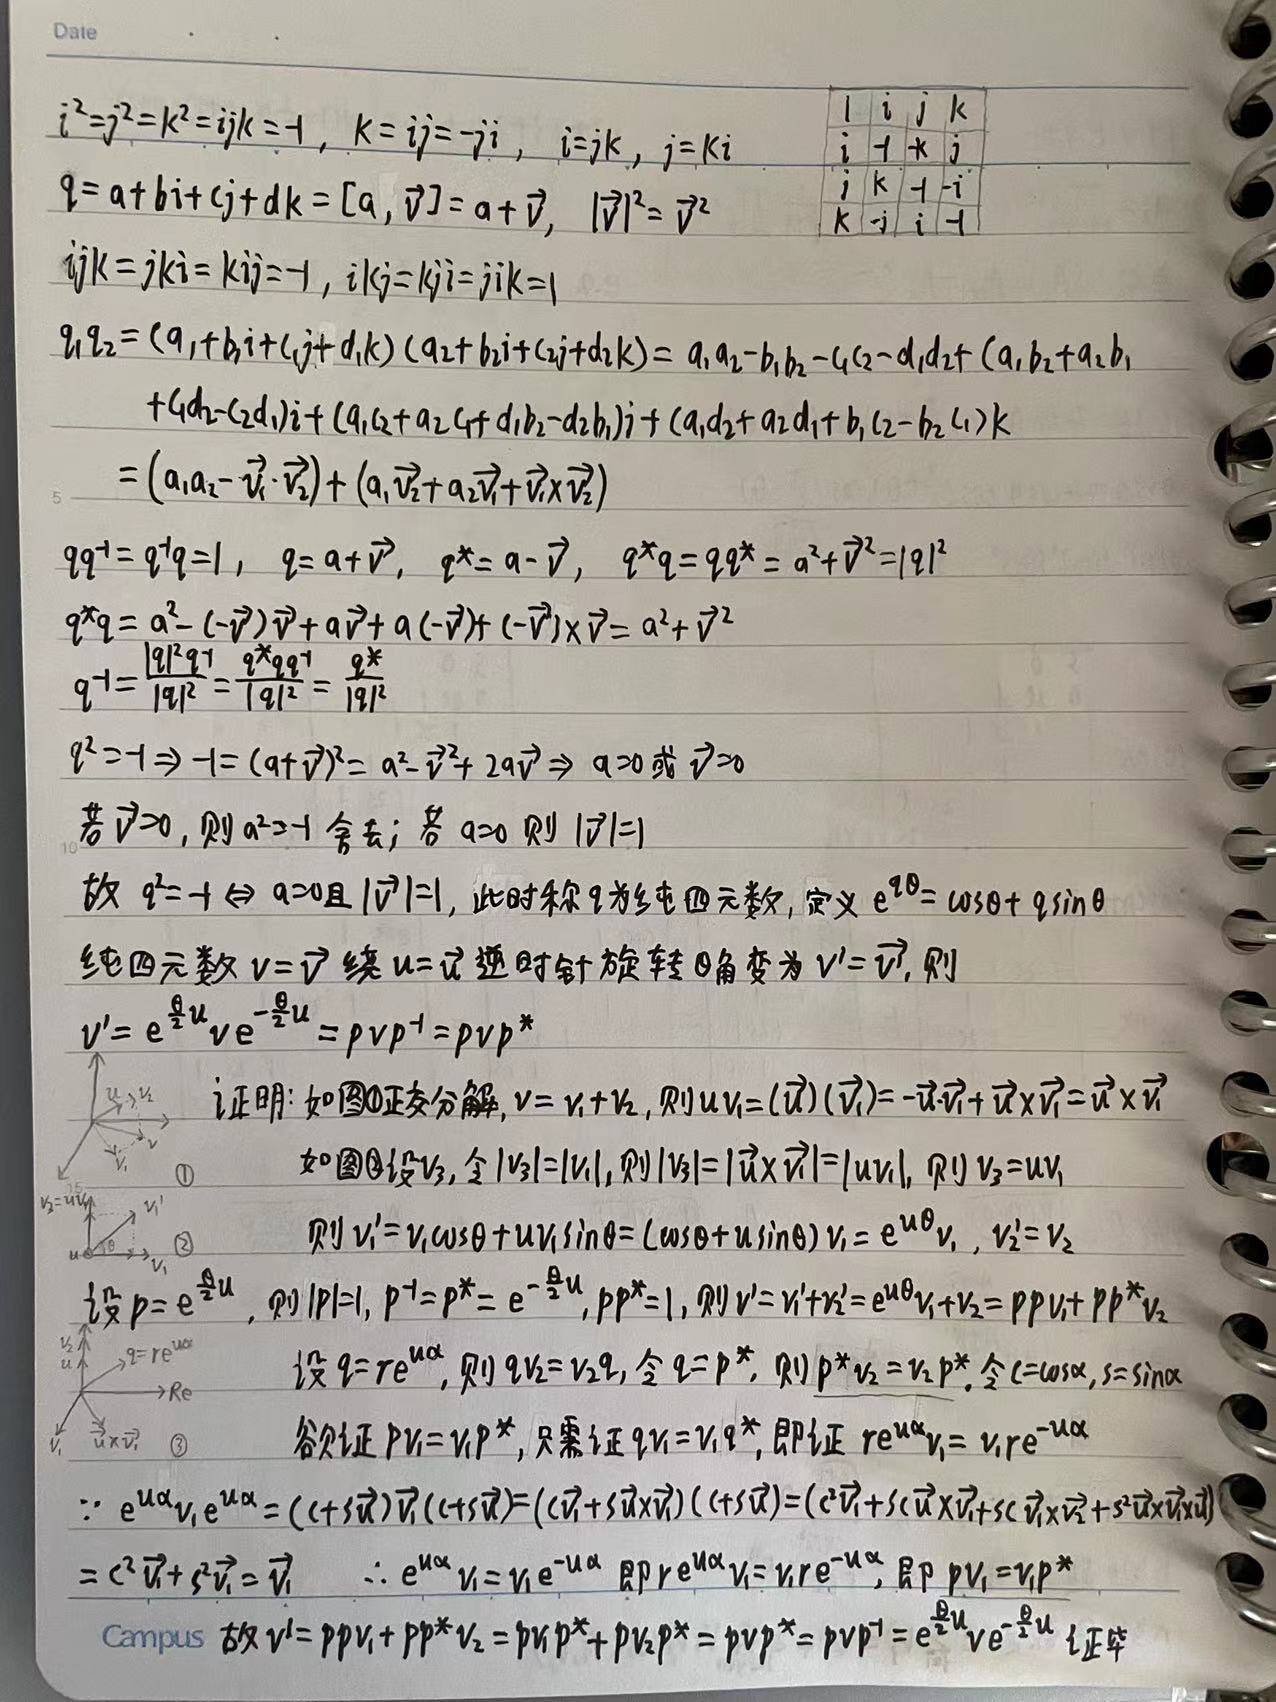 Date
i²=j²=k²=ijk=-1, k=ij=-ji, i=jk, j=ki
1 i j k
i -1 -k j
j k -1 -i
k -j i -1
q=a+bi+cj+dk=[a, v⃗]=a+v⃗, |v⃗|²=v⃗²
ijk=jki=kij=-1, ikj=kji=jik=1
q₁q₂=(a₁+b₁i+c₁j+d₁k)(a₂+b₂i+c₂j+d₂k)=a₁a₂-b₁b₂-c₁c₂-d₁d₂+(a₁b₂+a₂b₁
+c₁d₂-c₂d₁)i+(a₁c₂+a₂c₁+d₁b₂-d₂b₁)j+(a₁d₂+a₂d₁+b₁c₂-b₂c₁)k
5
=(a₁a₂-v⃗₁·v⃗₂)+(a₁v⃗₂+a₂v⃗₁+v⃗₁×v⃗₂)
qq⁻¹=q⁻¹q=1, q=a+v⃗, q*=a-v⃗, q*q=qq*=a²+v⃗²=|q|²
q*q=a²-(-v⃗)v⃗+av⃗+a(-v⃗)+(-v⃗)×v⃗=a²+v⃗²
q⁻¹=|q|²q⁻¹/|q|²=q*qq⁻¹/|q|²=q*/|q|²
q²=-1⇒-1=(a+v⃗)²=a²-v⃗²+2av⃗⇒a=0或v⃗=0
10
若v⃗=0,则a²=-1舍去;若a=0则|v⃗|=1
故q²=-1⇔a=0且|v⃗|=1,此时称q为纯四元数,定义e^{qθ}=cosθ+qsinθ
纯四元数v=v⃗绕u=u⃗逆时针旋转θ角变为v'=v⃗',则
v'=e^{θ/2 u}ve^{-θ/2 u}=pvp⁻¹=pvp*
u v₂
v
v₁
①
证明:如图①正交分解,v=v₁+v₂,则uv₁=(u⃗)(v⃗₁)=-u⃗·v⃗₁+u⃗×v⃗₁=u⃗×v⃗₁
15
如图②设v₃,令|v₃|=|v₁|,则|v₃|=|u⃗×v⃗₁|=|uv₁|,则v₃=uv₁
v₃=uv₁ v₁'
u θ v₁
②
则v₁'=v₁cosθ+uv₁sinθ=(cosθ+usinθ)v₁=e^{uθ}v₁, v₂'=v₂
设p=e^{θ/2 u},则|p|=1,p⁻¹=p*=e^{-θ/2 u},pp*=1,则v'=v₁'+v₂'=e^{uθ}v₁+v₂=ppv₁+pp*v₂
v₂
u q=re^{uα}
Re
v₁ u⃗×v⃗₁
③
设q=re^{uα},则qv₂=v₂q,令q=p*,则p*v₂=v₂p*.令c=cosα,s=sinα
欲证pv₁=v₁p*,只需证qv₁=v₁q*,即证re^{uα}v₁=v₁re^{-uα}
∵e^{uα}v₁e^{uα}=(c+su⃗)v⃗₁(c+su⃗)=(cv⃗₁+su⃗×v⃗₁)(c+su⃗)=(c²v⃗₁+scu⃗×v⃗₁+scv⃗₁×v⃗₂+s²u⃗×v⃗₁×u⃗)
=c²v⃗₁+s²v⃗₁=v⃗₁ ∴e^{uα}v₁=v₁e^{-uα}即re^{uα}v₁=v₁re^{-uα},即pv₁=v₁p*
Campus 故v'=ppv₁+pp*v₂=pv₁p*+pv₂p*=pvp*=pvp⁻¹=e^{θ/2 u}ve^{-θ/2 u}证毕